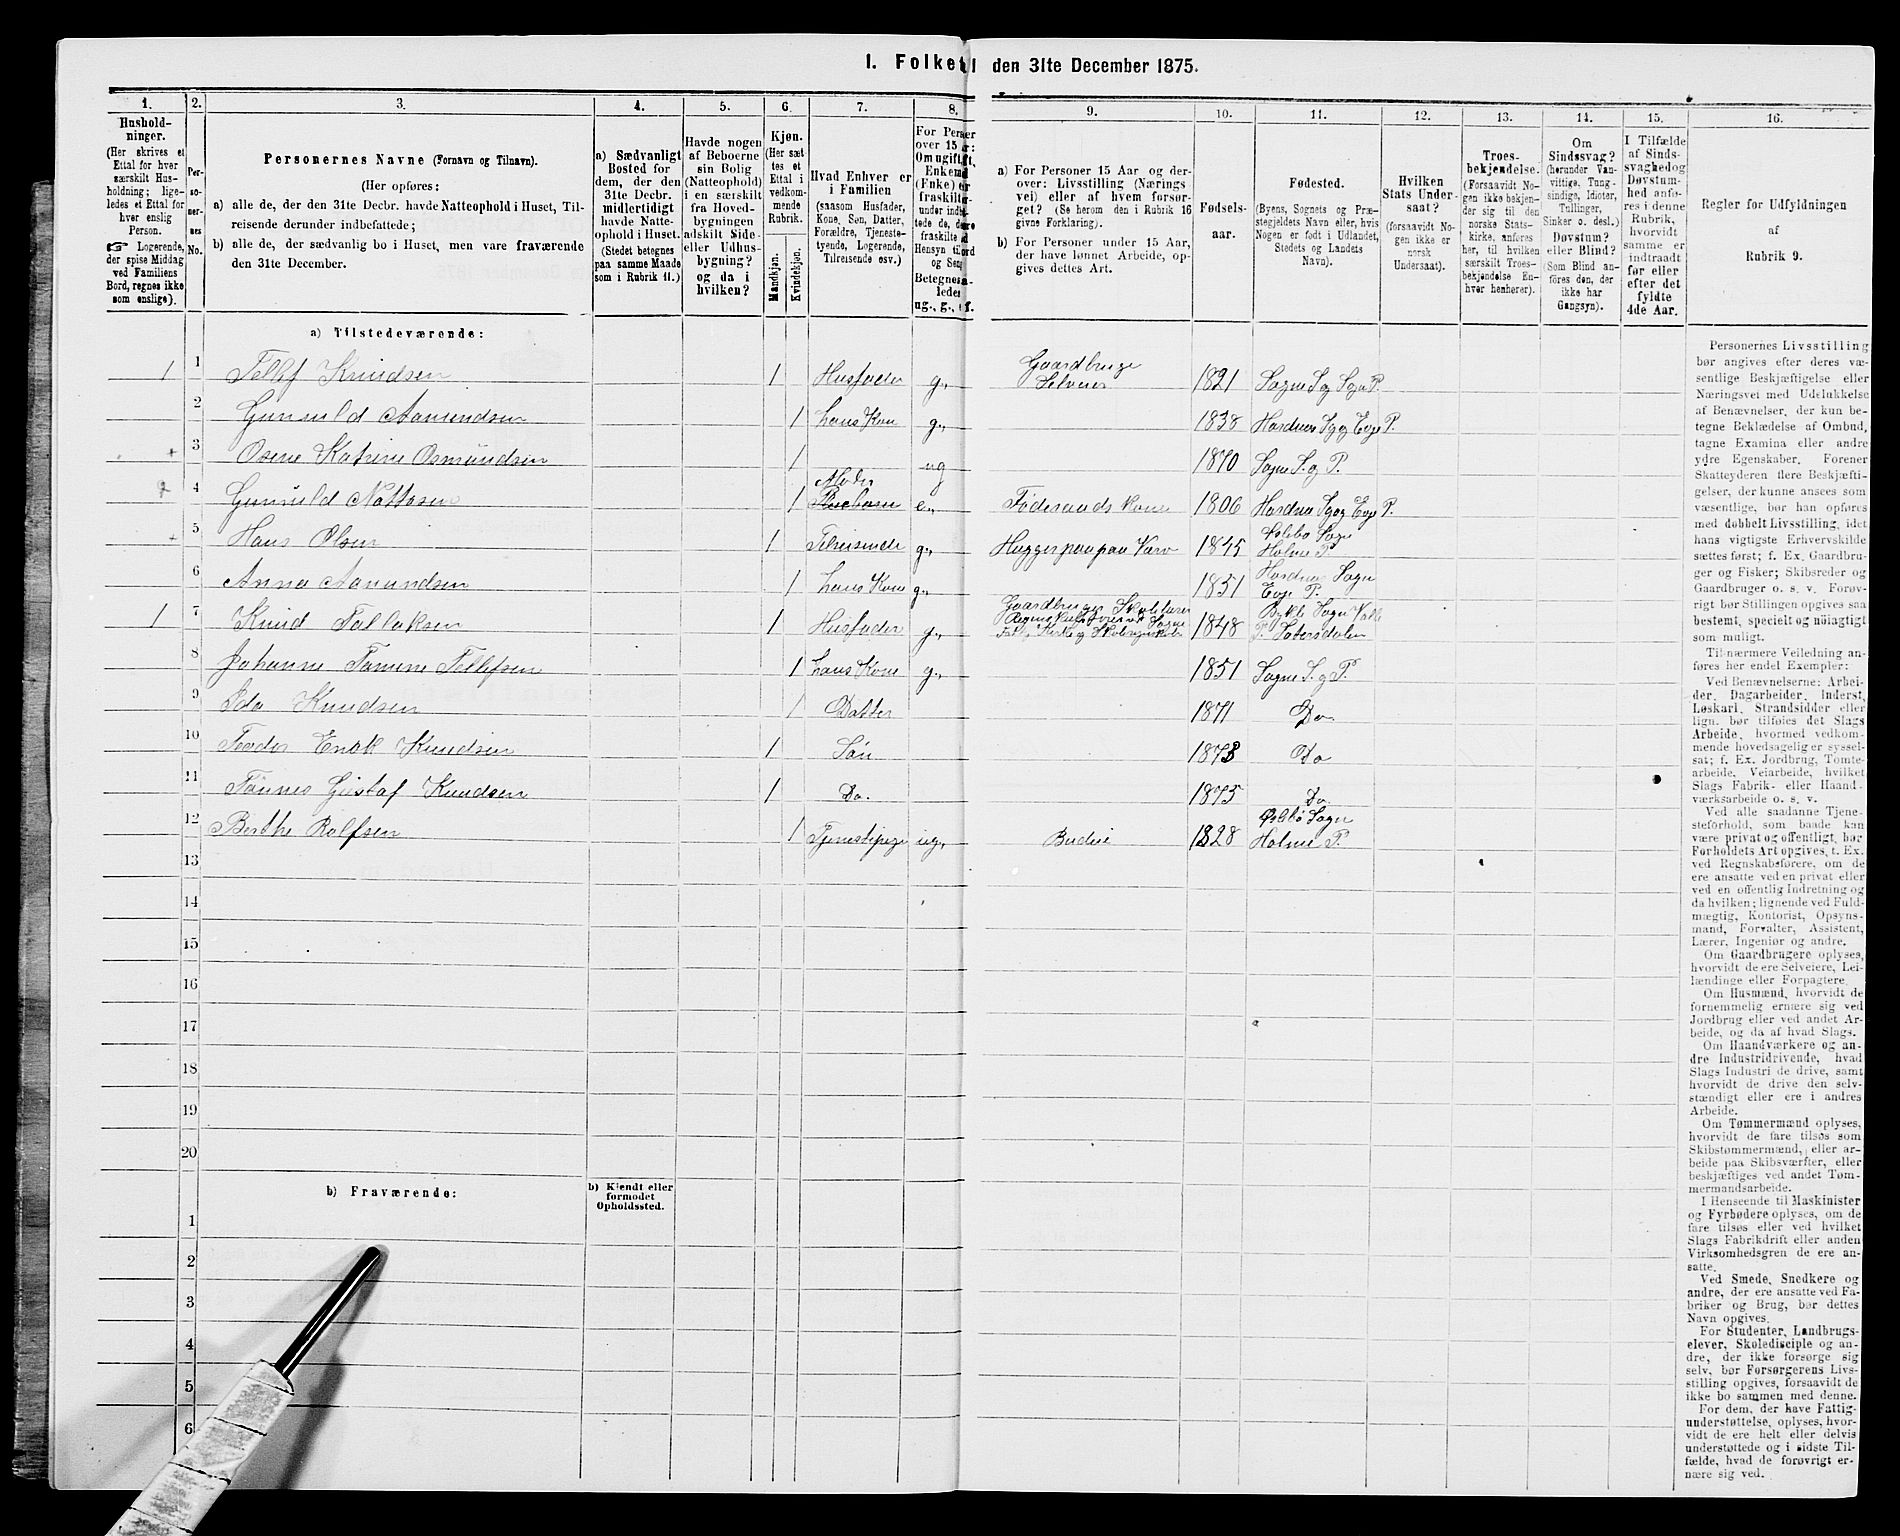 I. Folket
den 31te December 1875.
1.
2.
3.
4.
5.
6.
7.
8.
9.
10.
11.
12.
13.
14.
15.
16.
Hushold-
ninger.
(Her skrives et
Ettal for hver
særskilt Hus-
holdning; lige-
ledes et Ettal for
hver enslig
Person.
☞ Logerende,
der spise Middag
ved Familiens
Bord, regnes ikke
som enslige).
Per-
so-
ner-
nes
No.
Personernes Navne (Fornavn og Tilnavn).
(Her opføres:
a) alle de, der den 31te Decbr. havde Natteophold i Huset, Til-
reisende derunder indbefattede;
b) alle de, der sædvanlig bo i Huset, men vare fraværende
den 31te December.
a) Sædvanligt
Bosted for
dem, der den
31te Decbr.
midlertidigt
havde Natte-
ophold i Huset.
(Stedet betegnes
paa samme Maade
som i Rubrik 11.)
Havde nogen
af Beboerne
sin Bolig
(Natteophold)
i en særskilt
fra Hoved-
bygningen
adskilt Side-
eller Udhus-
bygning?
og da i
hvilken?
Kjøn.
(Her sæt-
tes et
Ettal i
vedkom-
mende
Rubrik.
Mandkjøn.
Kvindekjøn.
Hvad Enhver er
i Familien
(saasom Husfader,
Kone, Søn, Datter,
Forældre, Tjeneste-
tyende, Logerende,
Tilreisende osv.)
For Perso
over 15
Om ugift,
Enkema
(Enke) e
fraskilt
under indb
tede de,
fraskilte
Hensyn til
og Seng
Betegnes
ledes
ug., g., f.
a) For Personer 15 Aar og der-
over: Livsstilling (Nærings
vei) eller af hvem forsør-
get? (Se herom den i Rubrik 16
givne Forklaring).
b) For Personer under 15 Aar,
der have lønnet Arbeide, op-
gives dettes Art.
Fødsels-
aar.
Fødested.
(Byens, Sognets og Præ-
stegjeldets Navn eller, hvis
Nogen er født i Udlandet,
Stedets og Landets
Navn).
Hvilken
Stats Under-
saat?
(forsaavidt No-
gen ikke er
norsk
Undersaat).
Troes-
bekjendelse.
(Forsaavidt No-
gen ikke bekjen-
der sig til den
norske Stats-
kirke, anføres
her, til hvilken
særskilt Troes-
bekjendelse En-
hver henhører).
Om
Sindssvag?
(herunder Van-
vittige, Tung-
sindige, Idioter,
Tullinger,
Sinker o. desl.)
Døvstum?
eller Blind?
(Som Blind an-
føres den, der
ikke har
Gangsyn).
I Tilfælde
af Sinds-
svaghedog
Døvstum-
hed anfø-
res i denne
Rubrik,
hvorvidt
samme er
indtraadt
før eller
efter det
fyldte
4de Aar.
Regler for Udfyldningen
af
Rubrik 9.
a) Tilstedeværende:
1 1 Tellef Knudsen 1 Husfader g., Gaardbruger Selveier 1821 Sogne S og Sogn P.
2 Gunuld Aamundsen 1 hans Kone g., 1838 Hordnes S og Evje P.
3 Osene Katrine Osmundsen 1 ug 1870 Sogne S. og P.
4 Gunuld Nottosen 1 Moder e., Føderaads Kone 1806 Hordnes S og Evje P.
5 Hans Olsen 1 Tilreisende g., 1845 Øslebø Sogn Holme P
6 Anna Aamundsen 1 hans Kone g., 1851 Hordnes Sogn Evje P.
1 7 Knud Tallaksen 1 Husfader g., Gaardbruger Skolelærer 1848 Bykle Sogn Valle P. Sætersdalen
8 Johanne Tomine Tellefsen 1 hans Kone g., 1851 Sogne S. og P.
9 Ida Knudsen 1 Datter 1871 Do
10 Teodor Enok Knudsen 1 Søn 1873 Do
11 Tønnes Gustaf Knudsen 1 Do. 1875 Do
12 Berthe Rolfsen 1 Tjenestepige ug., Budeie 1828 Øslebø Sogn Holme P.
13
14
15
16
17
18
19
20
b) Fraværende:
b) Kjendt eller
formodet
Opholdssted.
1
2
3
4
5
6
Personernes Livsstilling
bør angives efter deres væ-
sentlige Beskjæftigelse eller
Næringsvei med Udelukkelse
af Benævnelser, der kun be-
tegne Beklædelse af Ombud,
tagne Examina eller andre
ydre Egenskaber. Forener
Skatteyderen flere Beskjæfti-
gelser, der kunne ansees som
væsentlige, bør han opføres
med dobbelt Livsstilling, idet
hans vigtigste Erhvervskilde
sættes først; f. Ex. Gaardbru-
ger og Fisker; Skibsreder og
Gaardbruger o. s. v. Forøv-
rigt bør Stillingen opgives saa
bestemt, specielt og nøiagtigt
som muligt.
Til nærmere Veiledning an-
føres her endel Exempler:
Ved Benævnelserne: Arbei-
der, Dagarbeider, Inderst,
Løskarl, Strandsidder eller
lign. bør tilføies det Slags
Arbeide, hvormed vedkom-
mende hovedsagelig er syssel-
sat; f. Ex. Jordbrug, Tomte-
arbeide, Veiarbeide, hvilket
Slags Fabrik- eller Haand-
værksarbeide o. s. v.
Ved alle saadanne Tjene-
steforhold, som baade kan
være privat og offentligt, bør
Forholdets Art opgives, t. Ex.
ved Regnskabsførere, om de
ere ansatte ved en privat eller
ved en offentlig Indretning og
da hvilken; lignende ved Fuld-
mægtig, Kontorist, Opsyns-
mand, Forvalter, Assistent,
Lærer, Ingeniør og andre.
Om Gaardbrugere oplyses,
hvorvidt de ere Selveiere, Lei-
lændinge eller Forpagtere.
Om Husmænd, hvorvidt de
fornemmelig ernære sig ved
Jordbrug eller ved andet Ar-
beide, og da af hvad Slags.
Om Haandværkere og an-
dre Industridrivende, hvad
Slags Industri de drive, samt
hvorvidt de drive den selv-
stændigt eller ere i andres
Arbeide.
Om Tømmermænd oplyses,
hvorvidt de fare tilsøs som
Skibstømmermænd, eller ar-
beide paa Skibsværfter, eller
beskjæftiges ved andet Tøm-
mermandsarbeide.
I Henseende til Maskinister
og Fyrbødere oplyses, om de
fare tilsøs eller ved hvilket
Slags Fabrikdrift eller anden
Virksomhedsgren de ere an-
satte.
Ved Smede, Snedkere og
andre, der ere ansatte ved Fa-
briker og Brug, bør dettes
Navn opgives.
For Studenter, Landbrugs-
elever, Skoledisciple og an-
dre, der ikke forsørge sig
selv, bør Forsørgerens Livs-
stilling opgives, forsaavidt de
ikke bo sammen med denne.
For dem, der have Fattig-
understøttelse, oplyses, hvor-
vidt de ere helt eller delvis
understøttede og i sidste Til-
fælde, hvad de forøvrigt er-
nære sig ved.